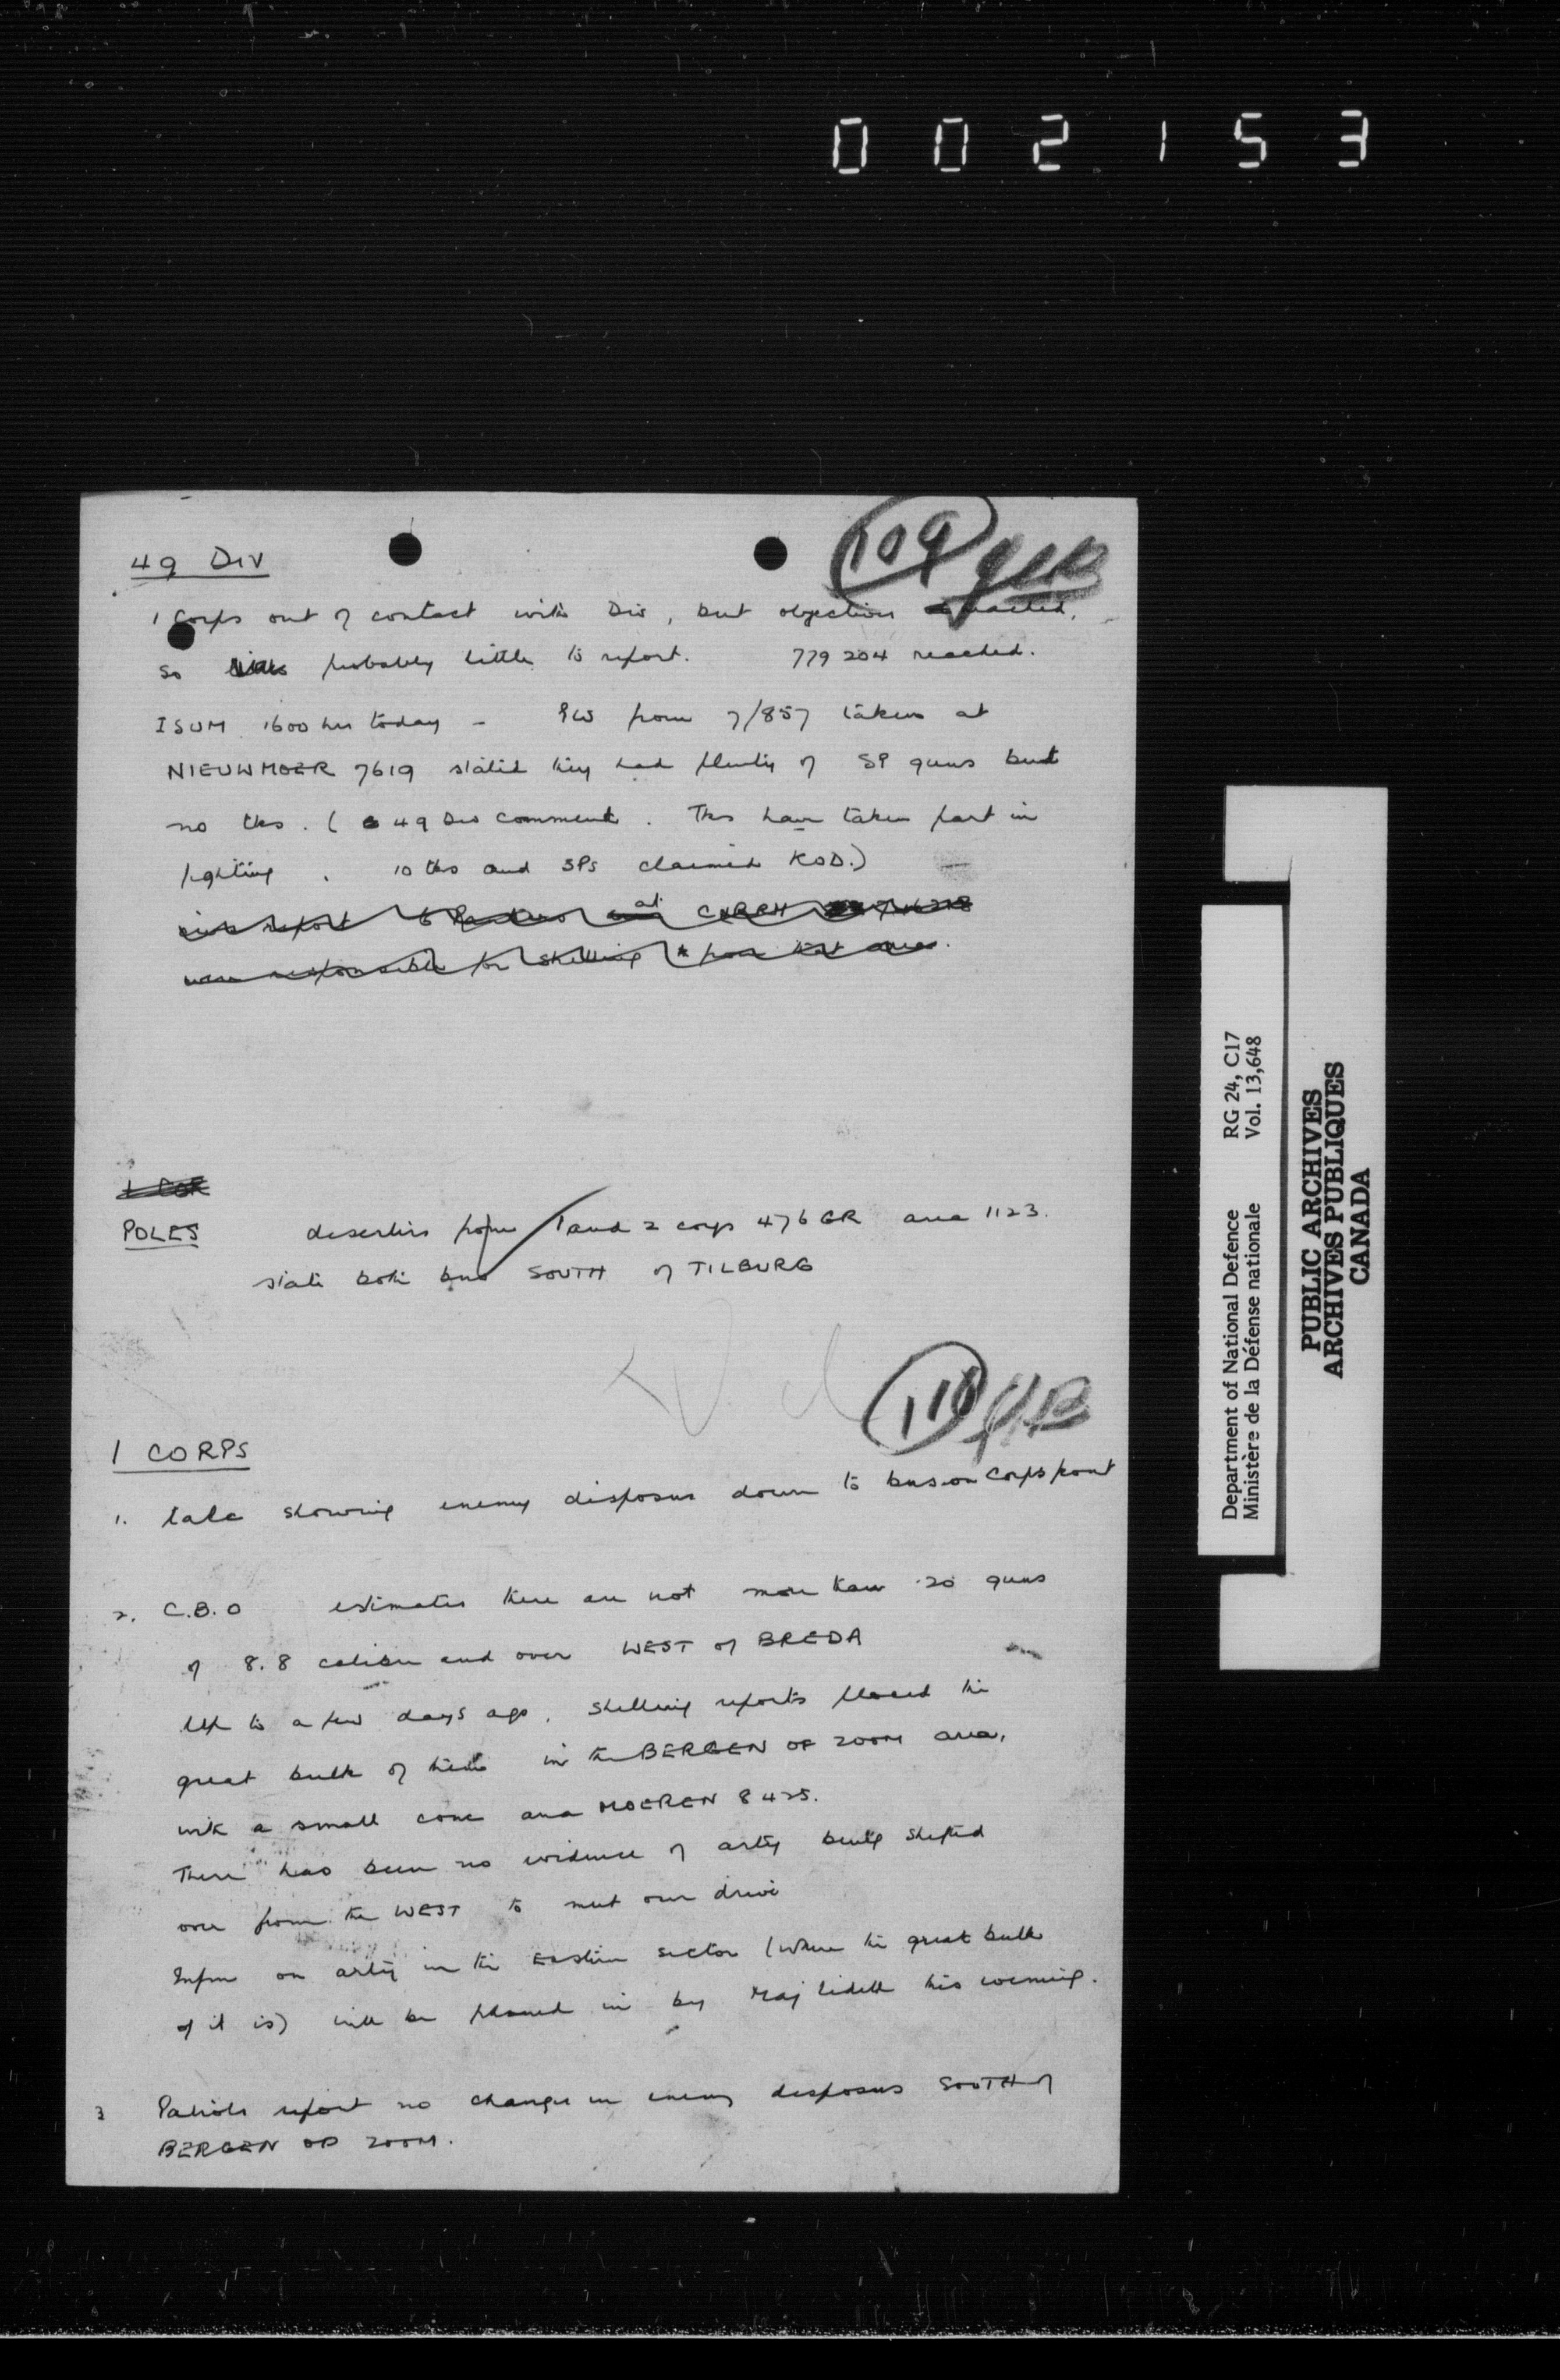 002153
109
49 DIV
1 Corps out of contact with Div, but objectives reached,
so probably little to report. 779204 reached.
ISUM 1600 hrs today - PW from 7/857 taken at
NIEUWMOER 7619 stated they had plenty of SP guns but
no tks. ( 49 Div comment. Tks have taken part in
fighting. 10 tks and SPs claimed KOD.)
report at
were responsible for shelling from that area.
1 COR
POLES deserters from 1 and 2 coys 476 GR area 1123.
state both bns SOUTH of TILBURG
110
1 CORPS
1. talc showing enemy disposns down to bns on Corps front
2. C.B.O estimates there are not more than 20 guns
of 8.8 calibre and over WEST of BREDA
Up to a few days ago, shelling reports placed the
great bulk of them in the BERGEN OP ZOOM area,
with a small conc area MOEREN 8425.
There has been no evidence of arty being shifted
over from the WEST to meet our drive
Infm on arty in the Eastern sector (where the great bulk
of it is) will be phoned in by Maj Lidell this evening.
3 Patrols report no change in enemy disposns SOUTH of
BERGEN OP ZOOM.
Department of National Defence RG 24, C17
Ministère de la Défense nationale Vol. 13,648
PUBLIC ARCHIVES
ARCHIVES PUBLIQUES
CANADA